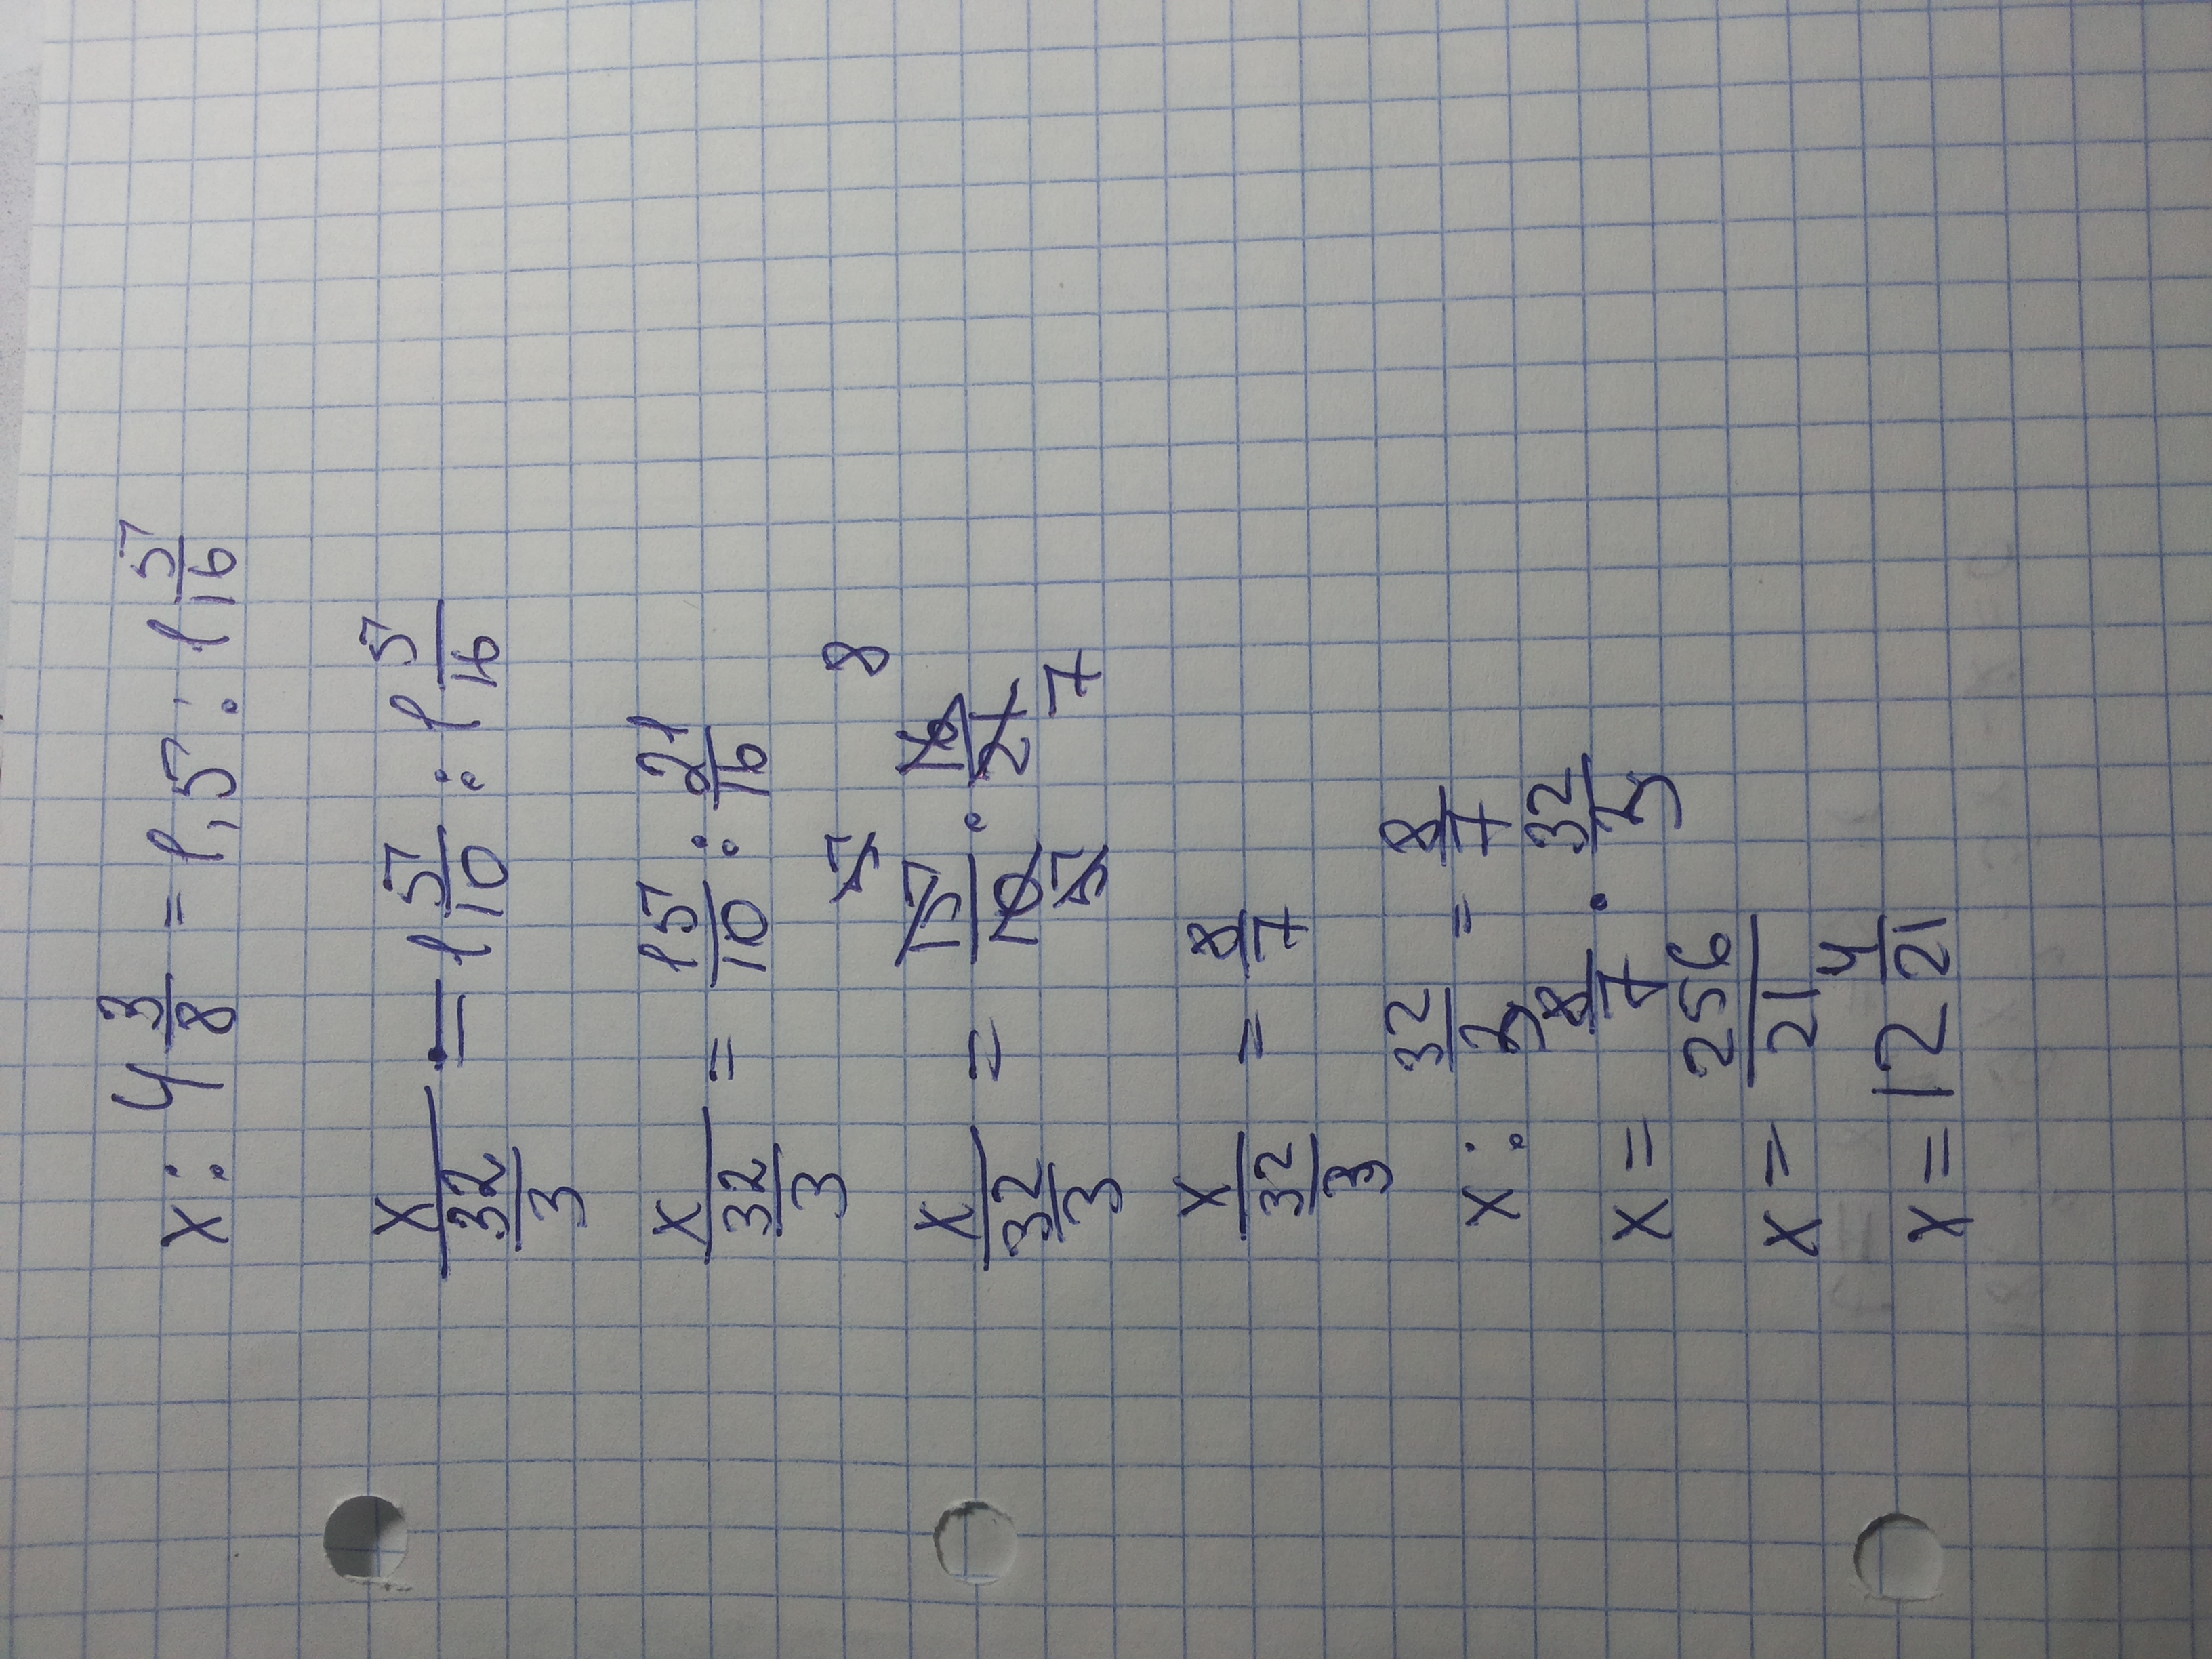 x : 4 3/8 = 1,5 : 1 5/16
x/(32/3) = 1 5/10 : 1 5/16
x/(32/3) = 15/10 : 21/16
5 8
x/(32/3) = 15/10 · 16/21
5 7
x/(32/3) = 8/7
x : 32/3 = 8/7
x = 8/7 · 32/3
x = 256/21
x = 12 4/21